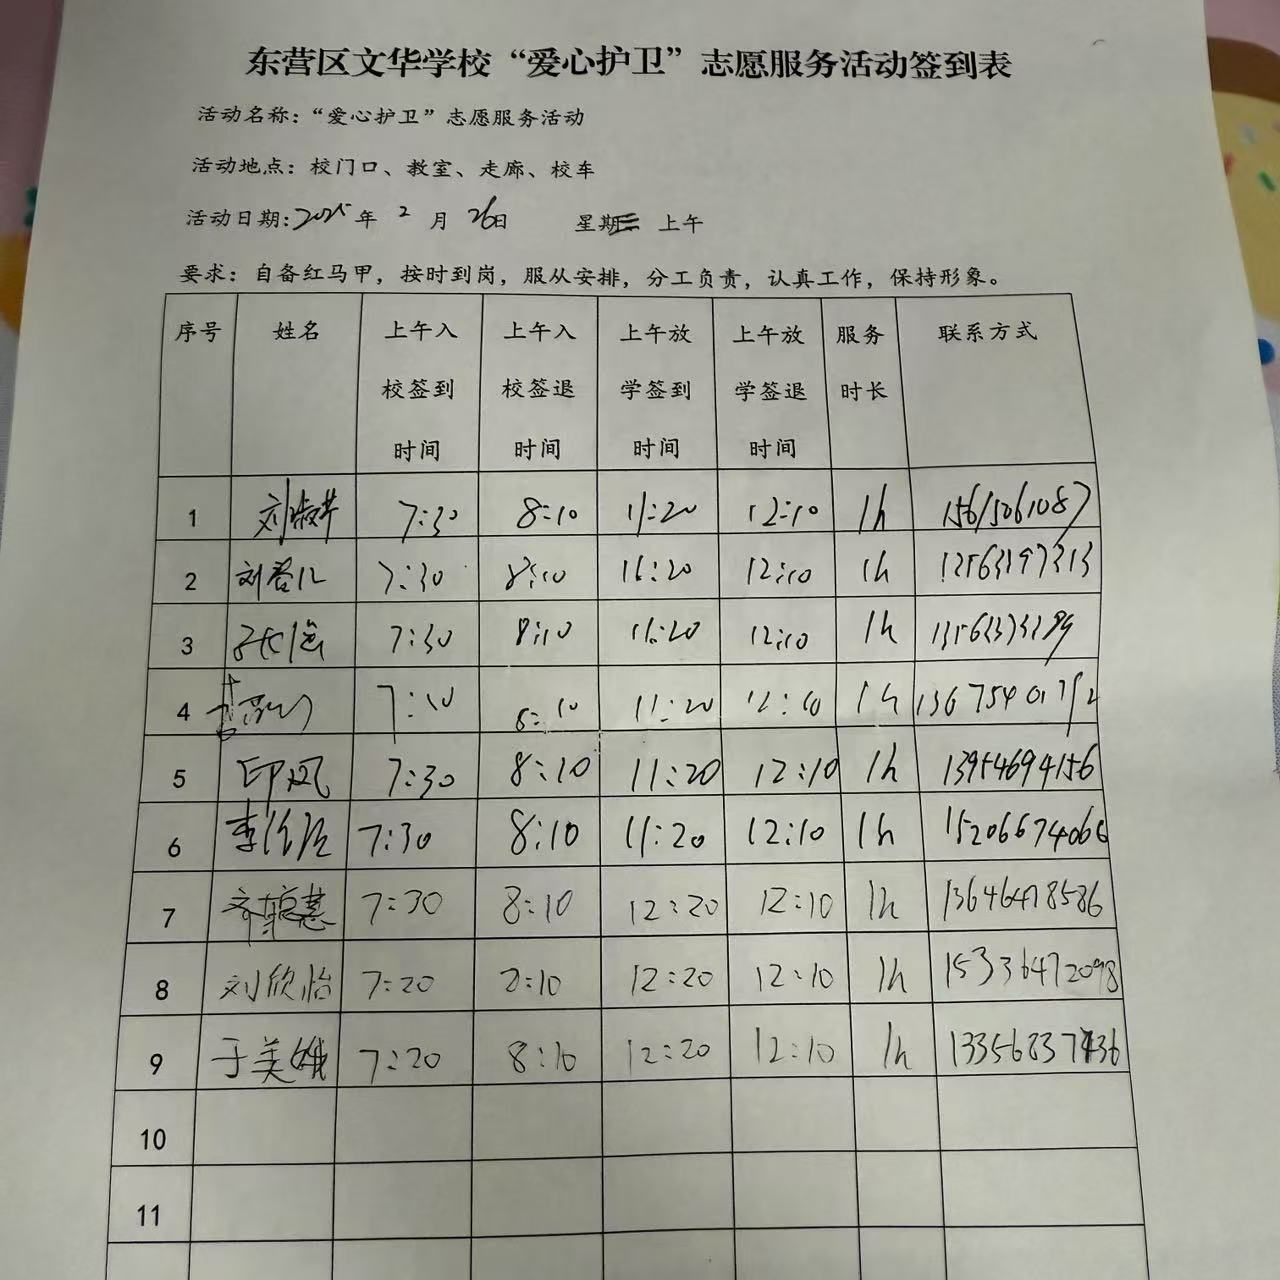 东营区文华学校“爱心护卫”志愿服务活动签到表
活动名称：“爱心护卫”志愿服务活动
活动地点：校门口、教室、走廊、校车
活动日期：2025年 2 月 26日 星期三 上午
要求：自备红马甲，按时到岗，服从安排，分工负责，认真工作，保持形象。
序号 姓名 上午入校签到时间 上午入校签退时间 上午放学签到时间 上午放学签退时间 服务时长 联系方式
1 刘淑华 7:30 8:10 11:20 12:10 1h 15615061087
2 7:30 8:10 11:20 12:10 1h
3 7:30 8:10 11:20 12:10 1h
4 11:20 12:10 1h
5 印凤 7:30 8:10 11:20 12:10 1h 13954694156
6 7:30 8:10 11:20 12:10 1h 15206674066
7 7:30 8:10 12:20 12:10 1h 13646478586
8 刘欣怡 7:20 12:20 12:10 1h 15336472098
9 于美娥 7:20 8:10 12:20 12:10 1h
10
11